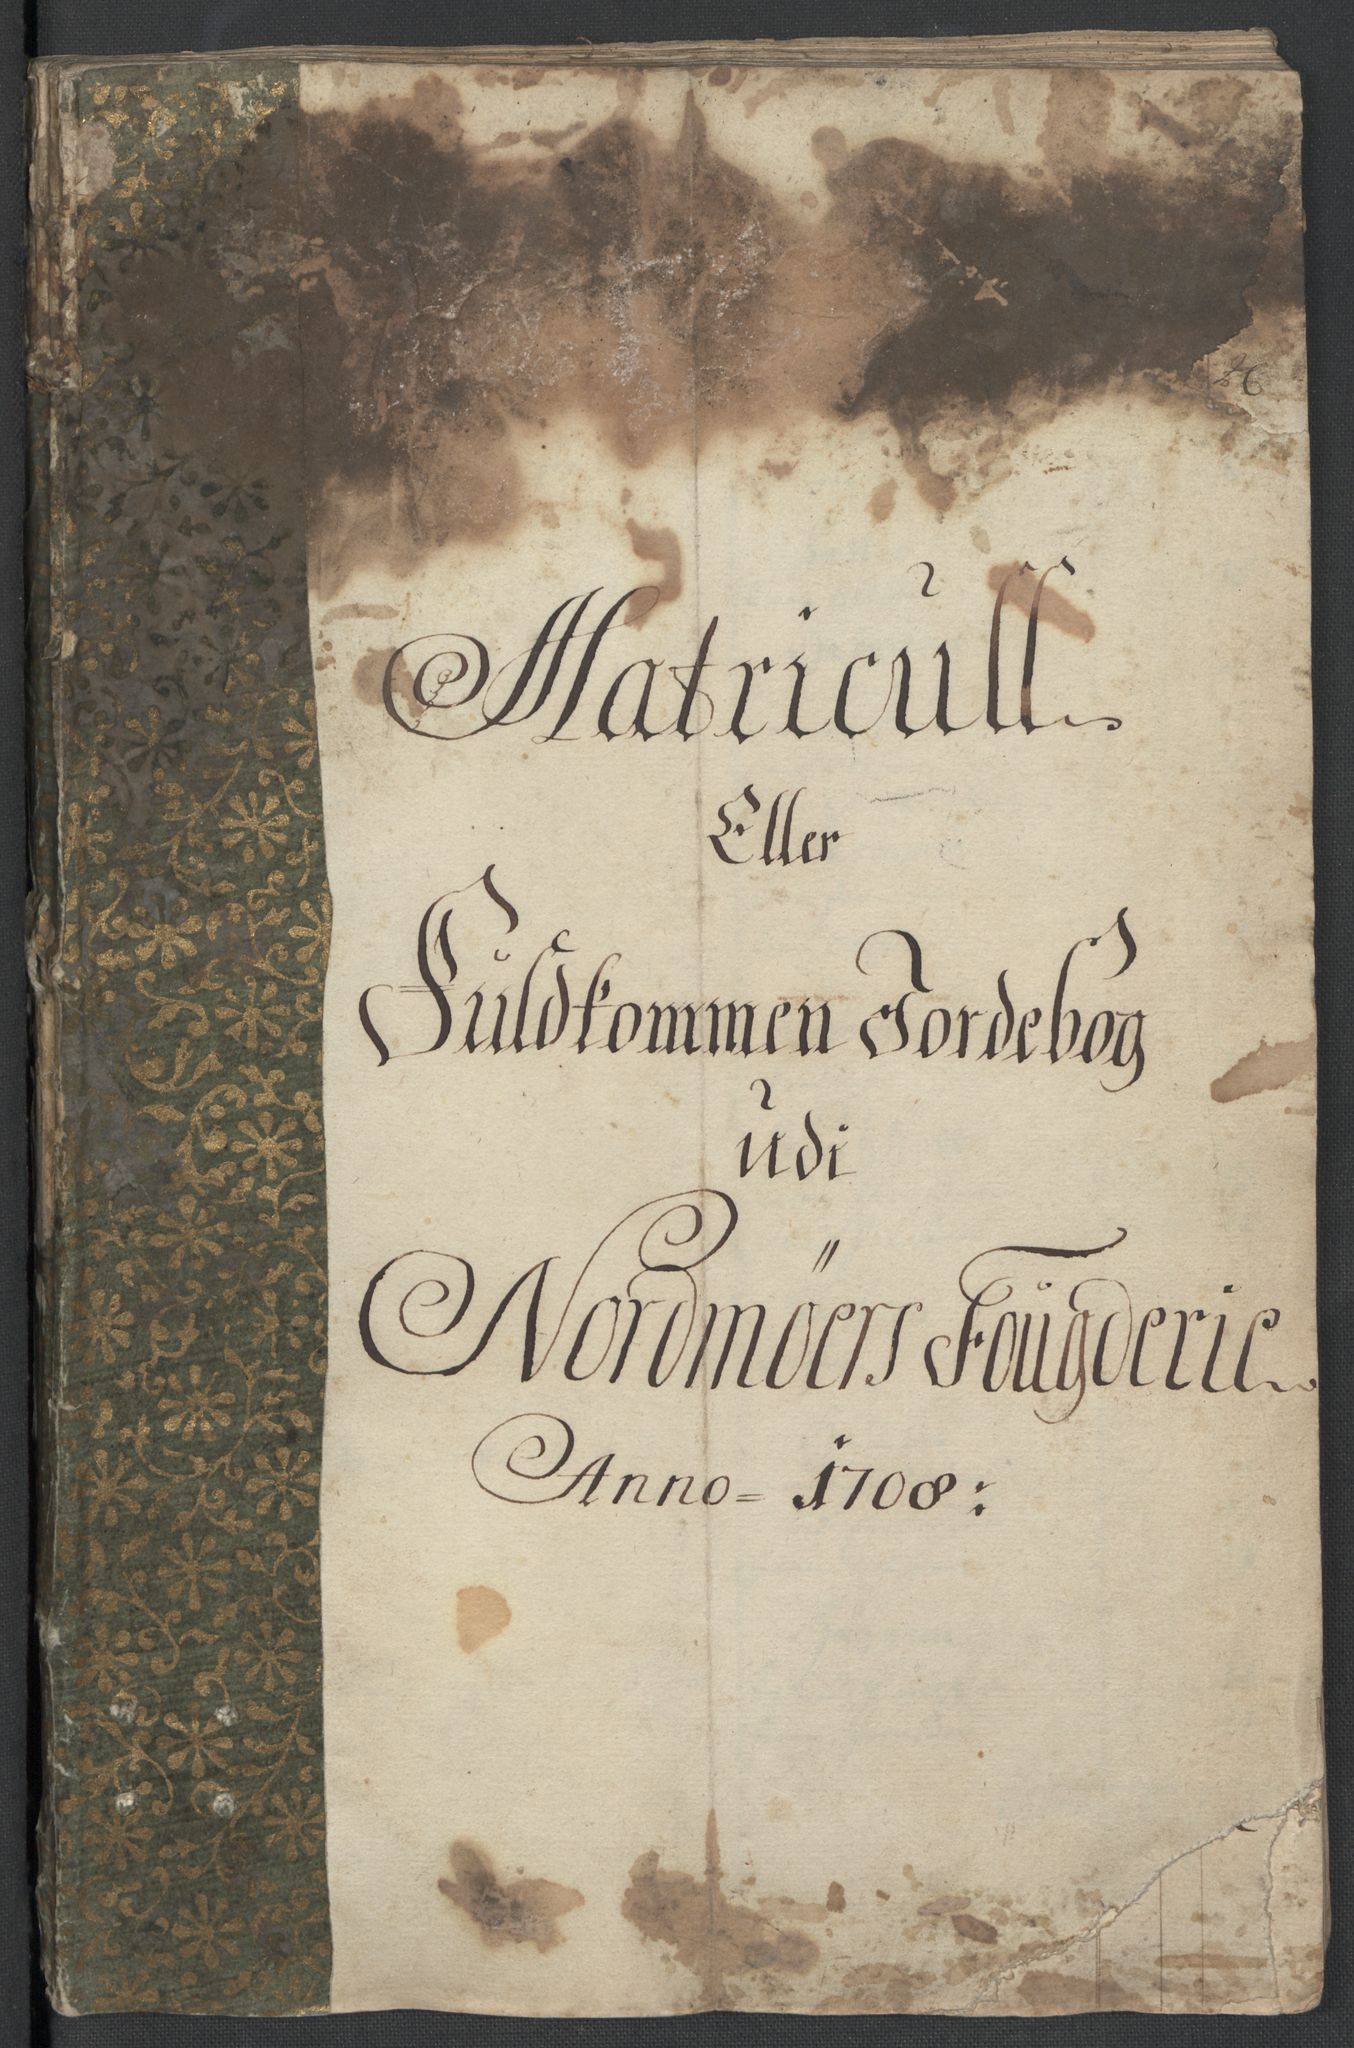 Matricull
Eller
Fuldkommen Jordebog
udi
Nordmöers Fougderie
Anno = 1708: